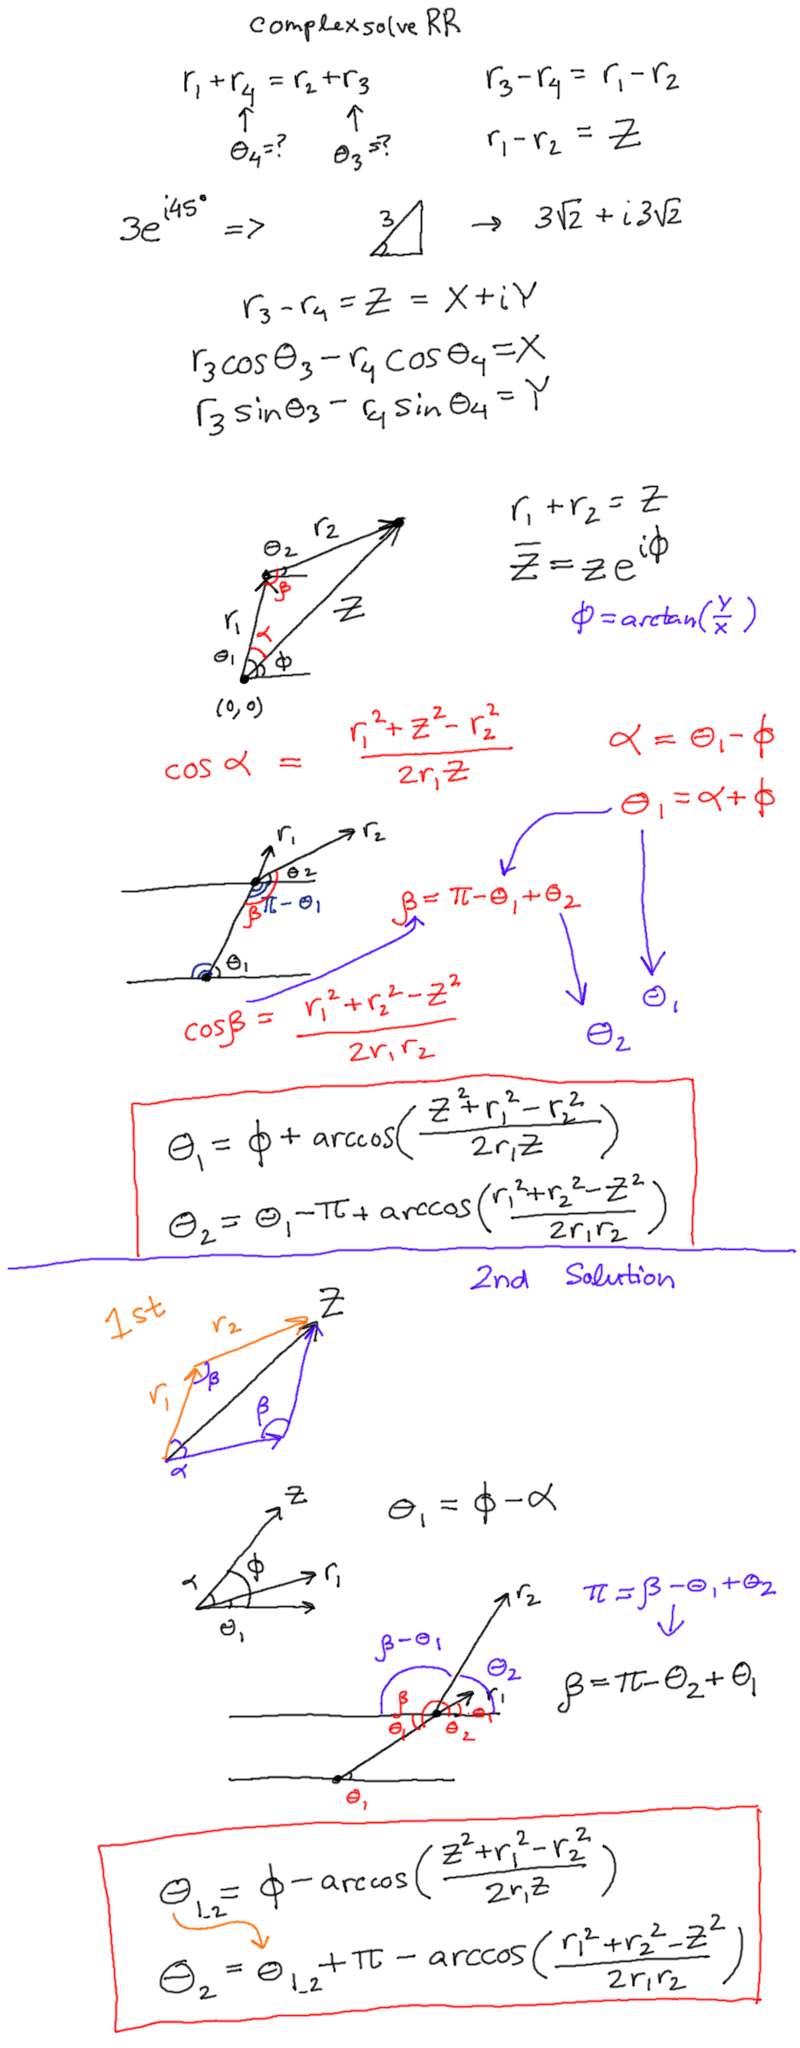 complexsolve RR
r₁ + r₄ = r₂ + r₃
r₃ - r₄ = r₁ - r₂
↑ ↑
θ₄=? θ₃=?
r₁ - r₂ = Z
3e^{i45°} => 3 → 3√2 + i3√2
r₃ - r₄ = Z = X + iY
r₃cosθ₃ - r₄cosθ₄ = X
r₃sinθ₃ - r₄sinθ₄ = Y
r₁ + r₂ = Z
Z̅ = ze^{iϕ}
ϕ = arctan(Y/X)
r₂
θ₂
β
Z
r₁
α
θ₁ ϕ
(0,0)
cos α = (r₁² + Z² - r₂²)/(2r₁Z)
α = θ₁ - ϕ
θ₁ = α + ϕ
r₁ r₂
θ₂
β π-θ₁
θ₁
β = π - θ₁ + θ₂
θ₁
θ₂
cosβ = (r₁² + r₂² - Z²)/(2r₁r₂)
θ₁ = ϕ + arccos((Z² + r₁² - r₂²)/(2r₁Z))
θ₂ = θ₁ - π + arccos((r₁² + r₂² - Z²)/(2r₁r₂))
2nd Solution
1st
r₂ Z
r₁ β
β
α
θ₁ = ϕ - α
Z
α ϕ r₁
θ₁
r₂
β-θ₁ θ₂
r₁
β
θ₁ θ₂ θ₁
θ₁
π = β - θ₁ + θ₂
↓
β = π - θ₂ + θ₁
θ₁_₂ = ϕ - arccos((Z² + r₁² - r₂²)/(2r₁Z))
θ₂ = θ₁_₂ + π - arccos((r₁² + r₂² - Z²)/(2r₁r₂))